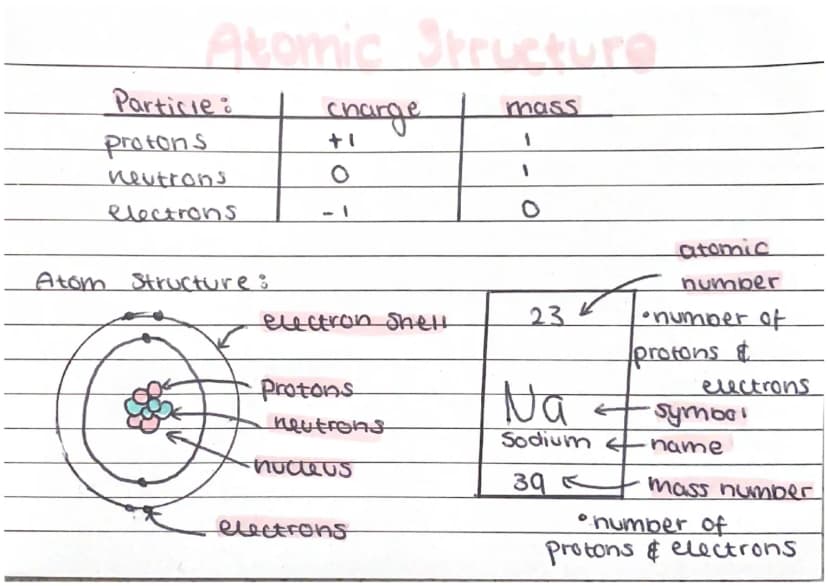 Atomic Structure
Particle: charge mass
protons +1 1
neutrons 0 1
electrons -1 0
Atom Structure:
electron shell
protons
neutrons
nucleus
electrons
atomic
number
23
•number of
protons &
electrons
Na
symbol
Sodium
name
39
mass number
•number of
protons & electrons